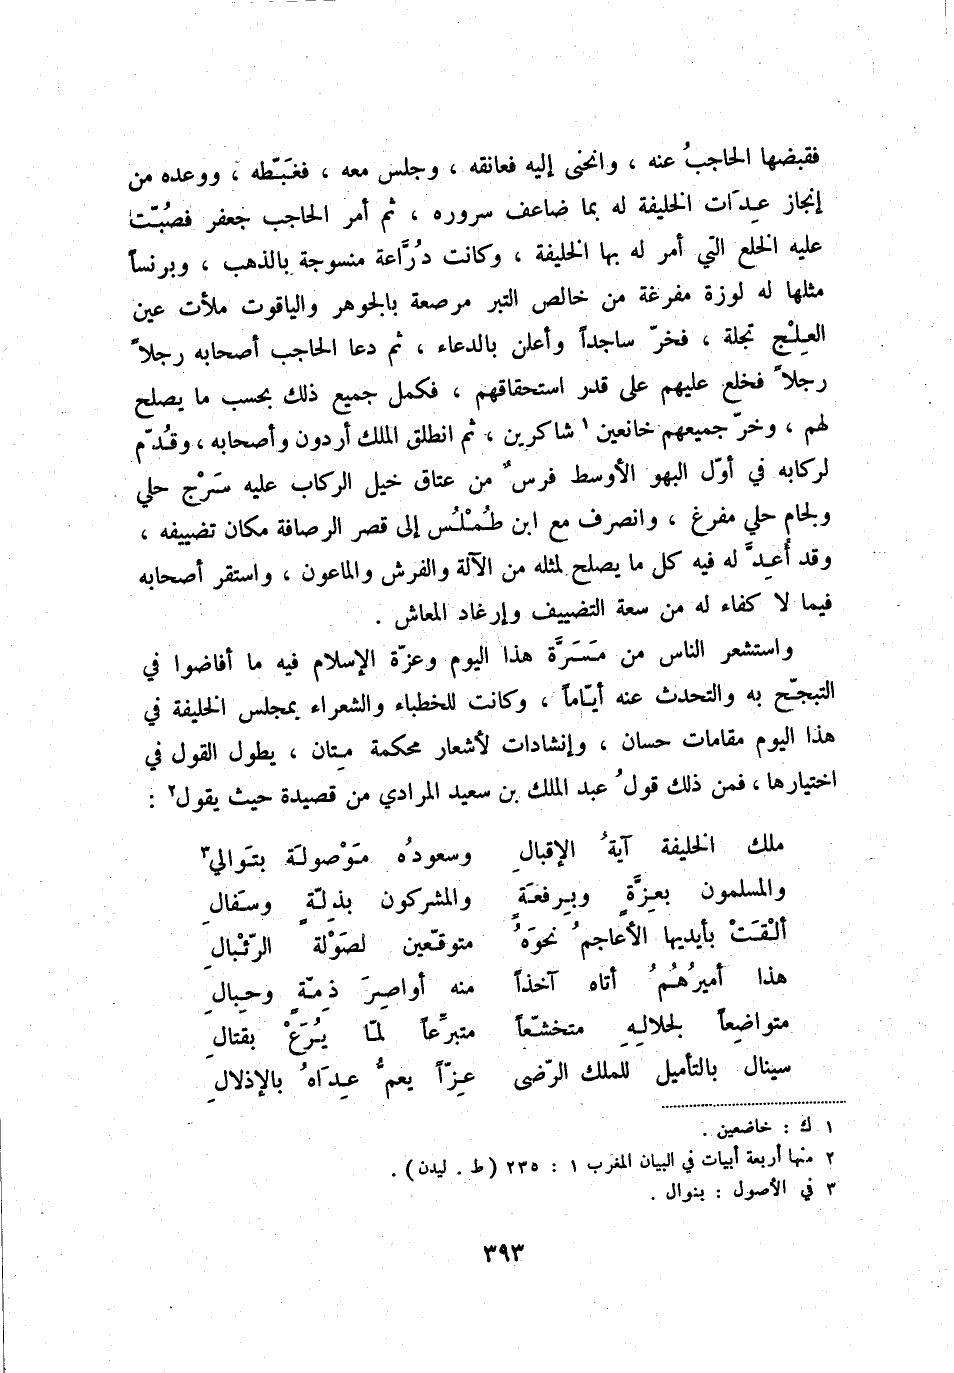 فقبضها الحاجبُ عنه ، وانحنى إليه فعانقه ، وجلس معه ، فغَبَّطه ، ووعده من
إنجاز عِدَات الخليفة له بما ضاعف سروره ، ثم أمر الحاجب جعفر فصُبّت
عليه الخلع التي أمر له بها الخليفة ، وكانت دُرَّاعة منسوجة بالذهب ، وبرنساً
مثلها له لوزة مفرغة من خالص التبر مرصعة بالجوهر والياقوت ملأت عين
العِلْج تجلة ، فخرّ ساجداً وأعلن بالدعاء ، ثم دعا الحاجب أصحابه رجلاً
رجلاً فخلع عليهم على قدر استحقاقهم ، فكمل جميع ذلك بحسب ما يصلح
لهم ، وخرّ جميعهم خانعين ١ شاكرين ، ثم انطلق الملك أردون وأصحابه ، وقُدّم
لركابه في أوّل البهو الأوسط فرسٌ من عتاق خيل الركاب عليه سَرْج حلي
ولجام حلي مفرغ ، وانصرف مع ابن طُمْلُس إلى قصر الرصافة مكان تضييفه ،
وقد أُعِدَّ له فيه كل ما يصلح لمثله من الآلة والفرش والماعون ، واستقر أصحابه
فيما لا كفاء له من سعة التضييف وإرغاد المعاش .
واستشعر الناس من مَسَرَّة هذا اليوم وعزّة الإسلام فيه ما أفاضوا في
التبجّح به والتحدث عنه أيّاماً ، وكانت للخطباء والشعراء بمجلس الخليفة في
هذا اليوم مقامات حسان ، وإنشادات لأشعار محكمة مِتان ، يطول القول في
اختيارها ، فمن ذلك قولُ عبد الملك بن سعيد المرادي من قصيدة حيث يقول ٢ :
ملك الخليفة آيةُ الإقبالِ وسعودُه مَوْصولَة بتَوالي ٣
والمسلمون بعِزَّةٍ وبرِفعَةٍ والمشركون بذِلّةٍ وسَفالِ
ألْقَتْ بأيديها الأعاجمُ نحوَهُ متوقّعين لصَوْلة الرّئبالِ
هذا أميرُهُمُ أتاه آخذاً منه أواصِرَ ذِمّةٍ وحِبالِ
متواضِعاً لجلالِهِ متخشّعاً متبرِّعاً لمّا يُرَعْ بقتالِ
سينال بالتأميل للملك الرّضى عِزّاً يعمُّ عِدَاهُ بالإذلالِ
١ ك : خاضعين .
٢ منها أربعة أبيات في البيان المغرب ١ : ٢٣٥ (ط . ليدن) .
٣ في الأصول : بنوال .
٣٩٣